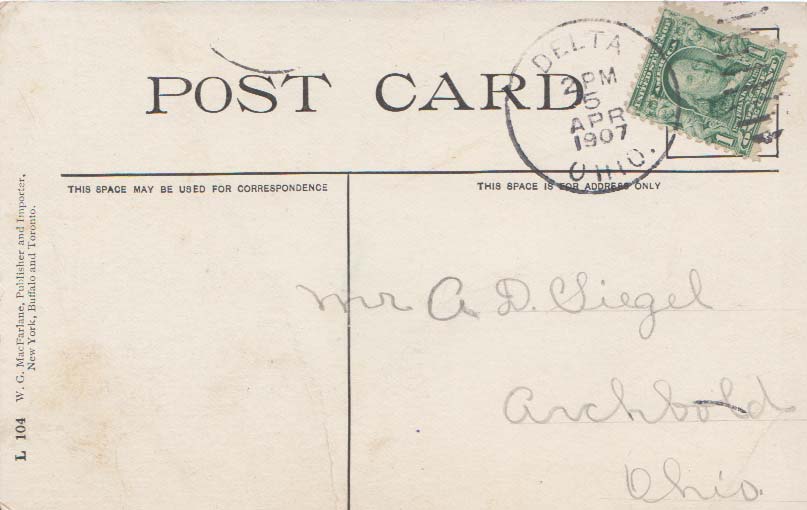 POST CARD
DELTA
2 PM
5
APR
1907
OHIO.
1
1
THIS SPACE MAY BE USED FOR CORRESPONDENCE
THIS SPACE IS FOR ADDRESS ONLY
L 104 W. G. MacFarlane, Publisher and Importer,
New York, Buffalo and Toronto.
Mr A D. Siegel
Archbold
Ohio.